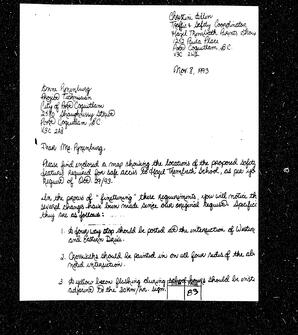 Christine
Traffic & Safety Coordinator
Hazel Trembath Parents Group
Port Coquitlam B.C.
V3C
Nov. 8, 1993
Anne Pynenburg
Project Technician
City of Port Coquitlam
2580 Shaughnessy Street
Port Coquitlam B.C.
V3C 2A8
Dear Ms. Pynenburg,
Please find enclosed a map showing the locations of the proposed safety
features required for safe access to Hazel Trembath School, as per your
request of Oct 29/93.
In the process of "finetuning" these requirements, you will notice that
several changes have been made since our original request. Specifically
they are as follows:
1. A four way stop should be posted at the intersection of Western
and Eastern Drive.
2. Crosswalks should be painted on all four sides of the above
noted intersection.
3. A yellow beacon flashing during school hours should be
adjacent to the 30 km/hr. sign.
83